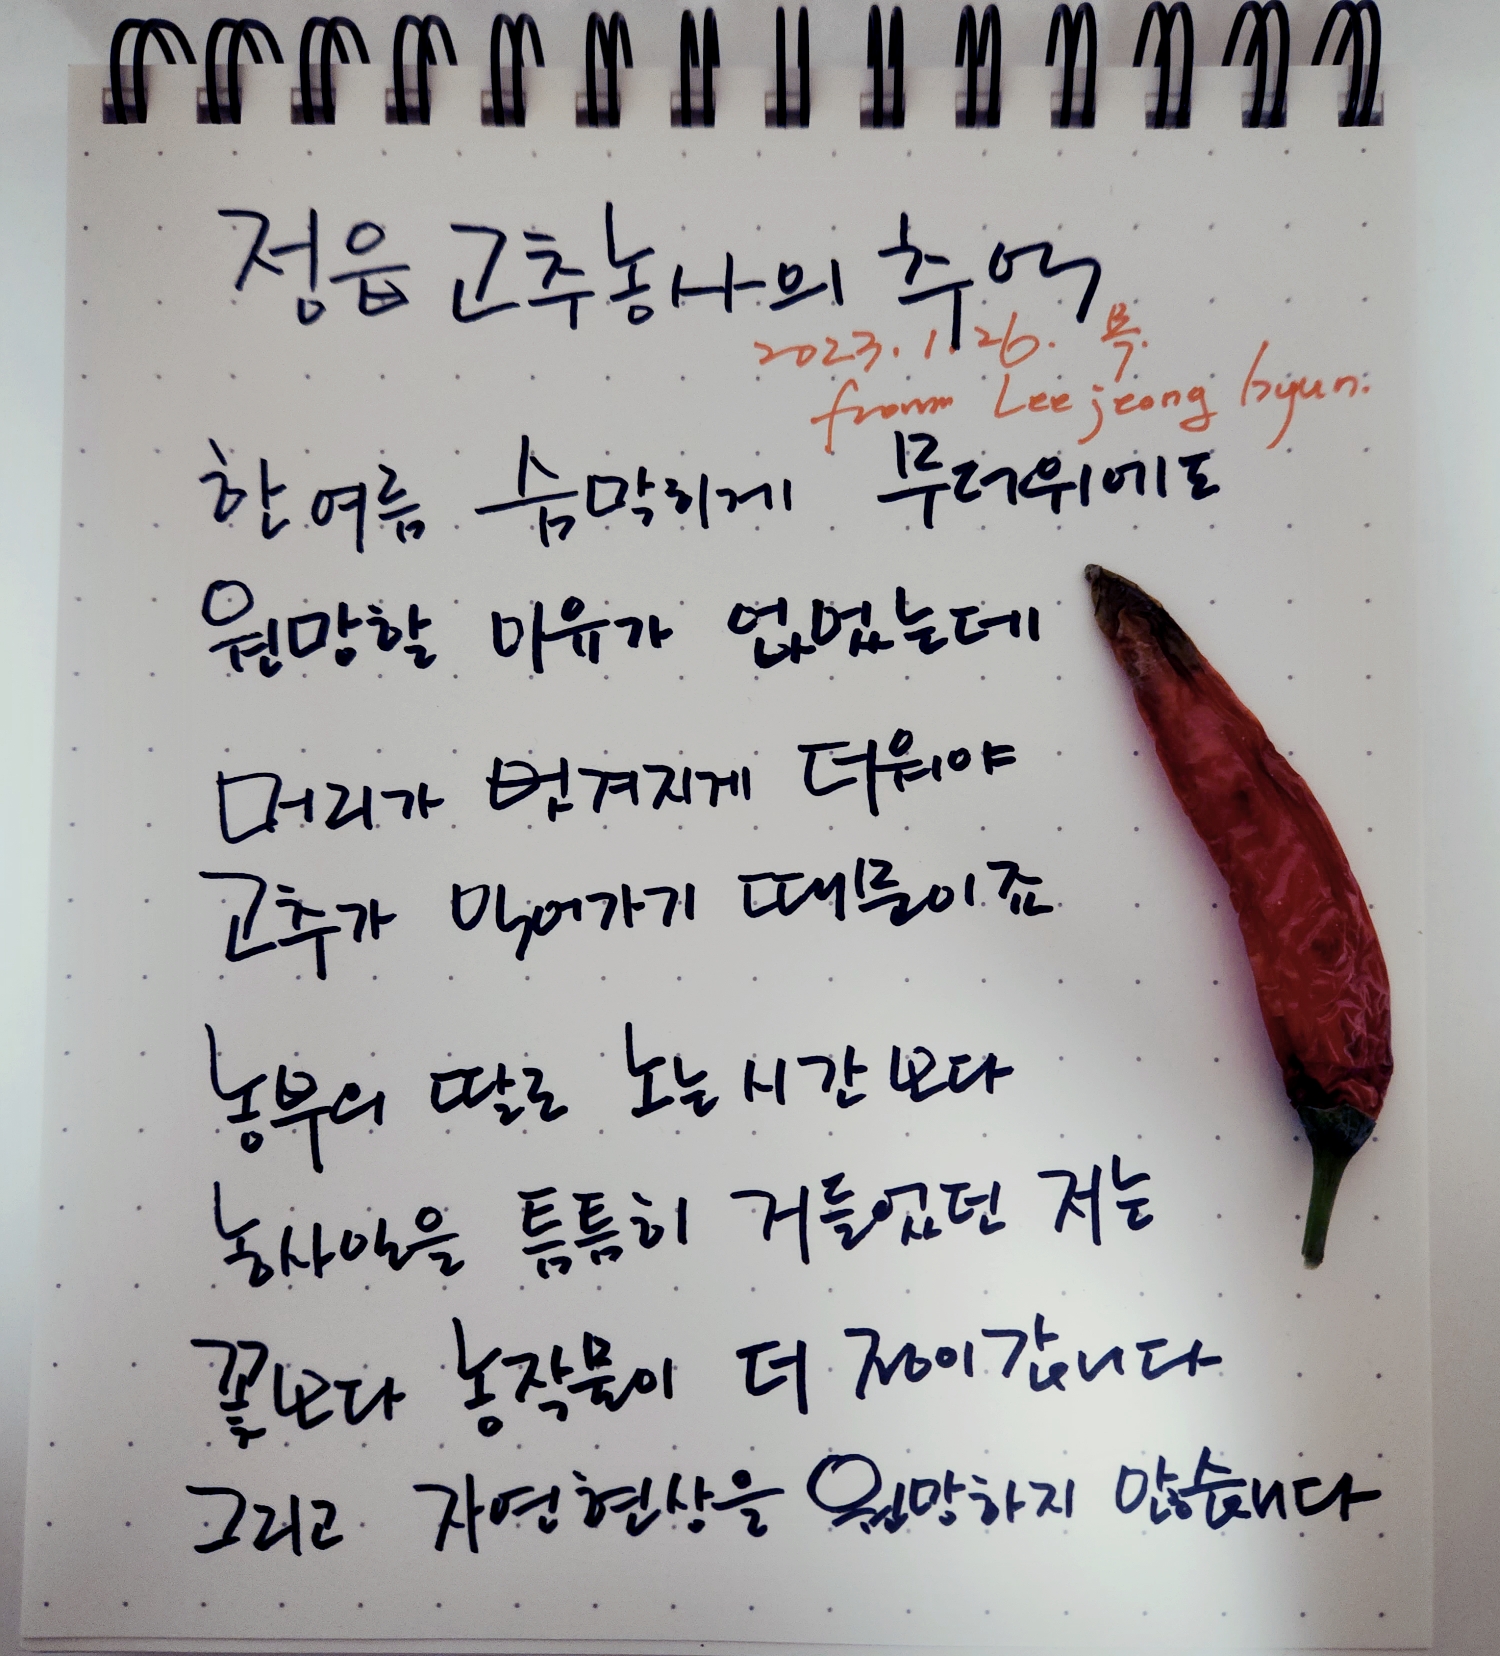 정읍 고추농사의 추억
2023. 1. 26. 목.
from Lee jeong hyun.
한여름 숨막히게 무더위에도
원망할 이유가 없었는데
머리가 벗겨지게 더워야
고추가 익어가기 때문이죠
농부의 딸로 노는시간보다
농사일을 틈틈히 거들었던 저는
꽃보다 농작물이 더 정이갑니다
그리고 자연현상을 원망하지 않습니다